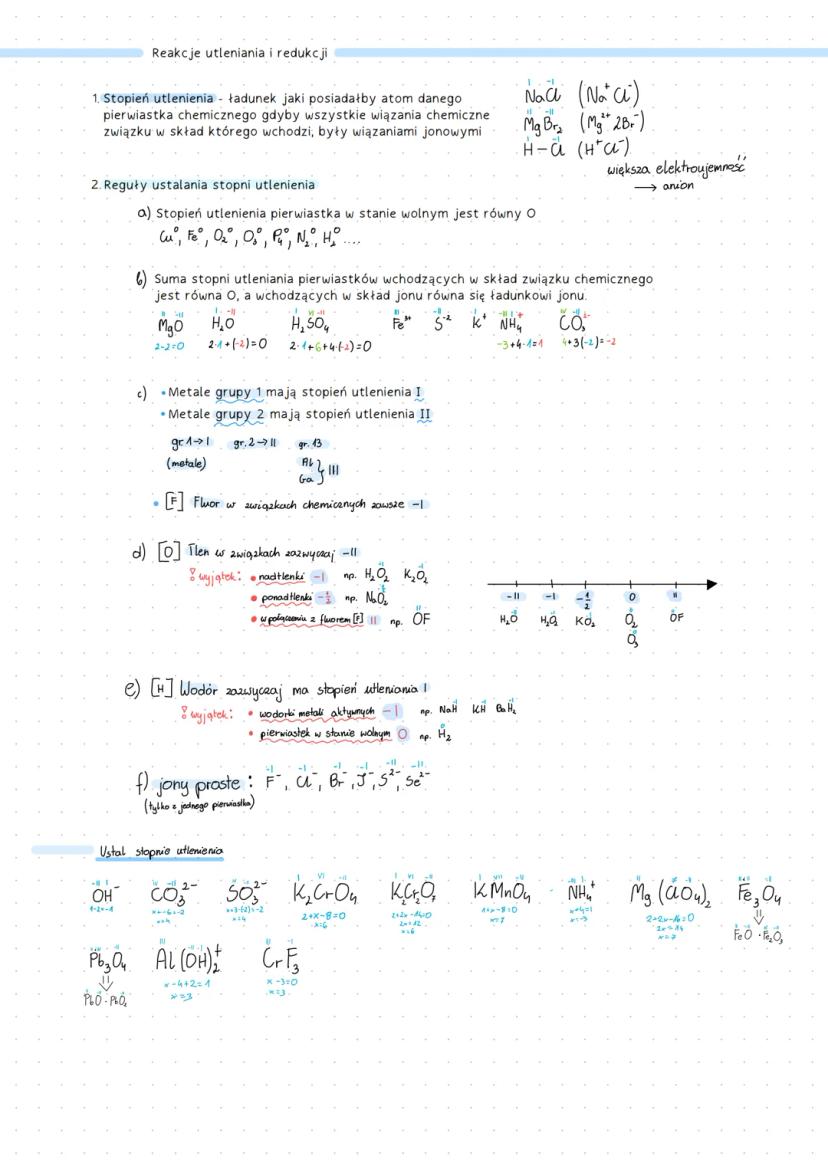 Reakcje utleniania i redukcji
1. Stopień utlenienia - ładunek jaki posiadałby atom danego
pierwiastka chemicznego gdyby wszystkie wiązania chemiczne
związku w skład którego wchodzi, były wiązaniami jonowymi
I -I
NaCl (Na⁺Cl⁻)
II -II
MgBr₂ (Mg²⁺ 2Br⁻)
H-Cl (H⁺Cl⁻)
większa elektroujemność
→ anion
2. Reguły ustalania stopni utlenienia
a) Stopień utlenienia pierwiastka w stanie wolnym jest równy 0
Cu⁰, Fe⁰, O₂⁰, O₃⁰, P₄⁰, N₂⁰, H₂⁰ ....
b) Suma stopni utleniania pierwiastków wchodzących w skład związku chemicznego
jest równa 0, a wchodzących w skład jonu równa się ładunkowi jonu.
II -II I -II I VI -II III -II I -III I IV -II
MgO H₂O H₂SO₄ Fe³⁺ S⁻² K⁺ NH₄⁺ CO₃²⁻
2-2=0 2·1+(-2)=0 2·1+6+4·(-2)=0 -3+4·1=1 4+3(-2)=-2
c) • Metale grupy 1 mają stopień utlenienia I
• Metale grupy 2 mają stopień utlenienia II
gr 1→I gr. 2→II gr. 13
(metale) Al
Ga } III
• [F] Fluor w związkach chemicznych zawsze -I
d) [O] Tlen w związkach zazwyczaj -II
wyjątek: • nadtlenki -I np. H₂O₂ K₂O₂
• ponadtlenki -½ np. NaO₂
• w połączeniu z fluorem [F] II np. OF
-II -I -½ 0 II
H₂O H₂O₂ KO₂ O₂ OF
O₃
e) [H] Wodór zazwyczaj ma stopień utleniania I
wyjątek: • wodorki metali aktywnych -I np. NaH KH BaH₂
• pierwiastek w stanie wolnym 0 np. H₂
f) jony proste: F⁻, Cl⁻, Br⁻, J⁻, S²⁻, Se²⁻
-I -I -I -I -II -II
(tylko z jednego pierwiastka)
Ustal stopnie utlenienia
OH⁻ CO₃²⁻ SO₃²⁻ K₂CrO₄ K₂Cr₂O₇ KMnO₄ NH₄⁺ Mg(ClO₄)₂ Fe₃O₄
1-2=-1 x+-6=-2 x+3·(-2)=-2 2+x-8=0 2+2x-14=0 1+x-8=0 x+4=1 2+2x-16=0
x=4 x=4 x=6 2x=12 x=7 x=-3 2x=14
x=6 x=7
FeO · Fe₂O₃
Pb₃O₄ Al(OH)₂⁺ CrF₃
x-4+2=1 x-3=0
x=3 x=3
PbO · PbO₂